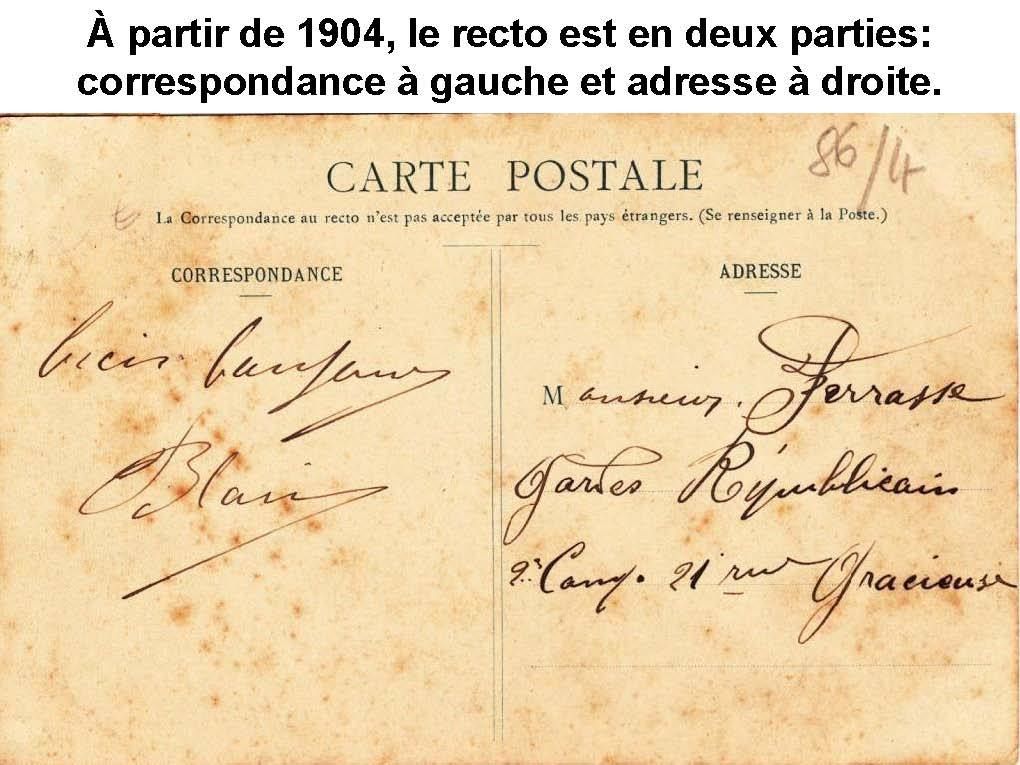 À partir de 1904, le recto est en deux parties:
correspondance à gauche et adresse à droite.
86/4
CARTE POSTALE
La Correspondance au recto n'est pas acceptée par tous les pays étrangers. (Se renseigner à la Poste.)
CORRESPONDANCE
Blain
ADRESSE
Monsieur. Ferrasse
Gardes Républicain
Comp. 21 rue Gracieuse